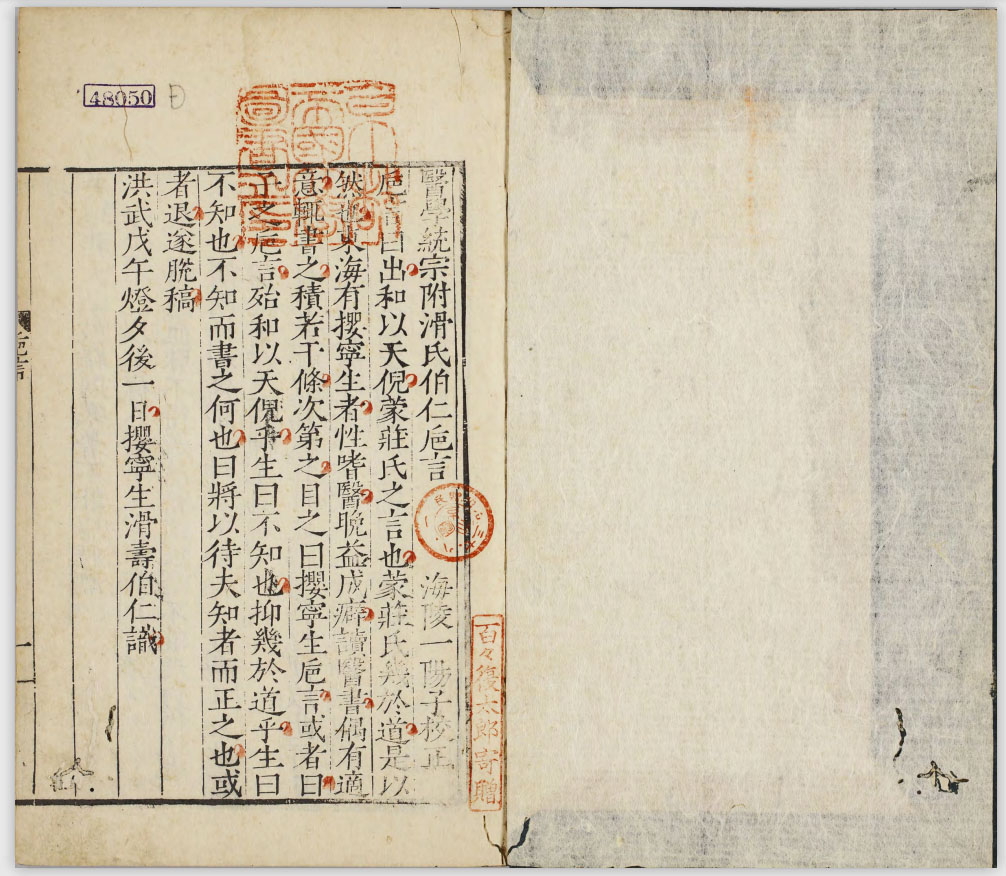 48050
醫學統宗附滑氏伯仁巵言　海陵一陽子校正
巵言日出和以天倪蒙莊氏之言也蒙莊氏幾於道是以
然也東海有攖寧生者性嗜醫晚益成癖讀醫書偶有適
意輒書之積若干條次第之目之曰攖寧生巵言或者曰
子之巵言殆和以天倪乎生曰不知也抑幾於道乎生曰
不知也不知而書之何也曰將以待夫知者而正之也或
者退遂脫稿
洪武戊午燈夕後一日攖寧生滑壽伯仁識
巵言
一
百々復太郎寄贈